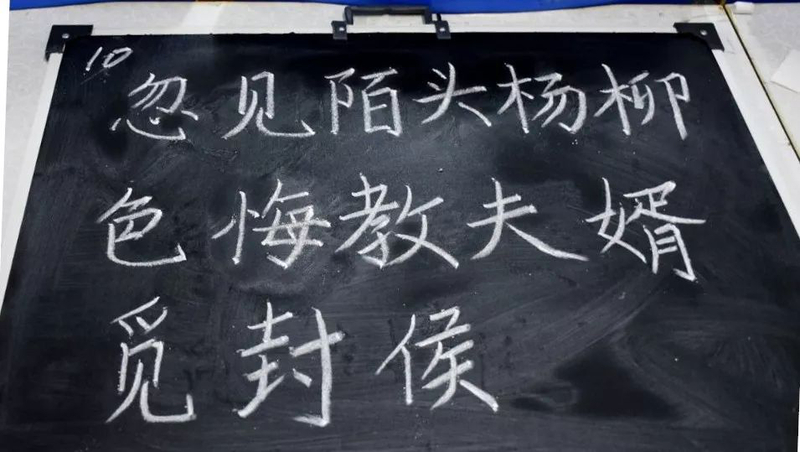 10
忽见陌头杨柳
色悔教夫婿
觅封侯